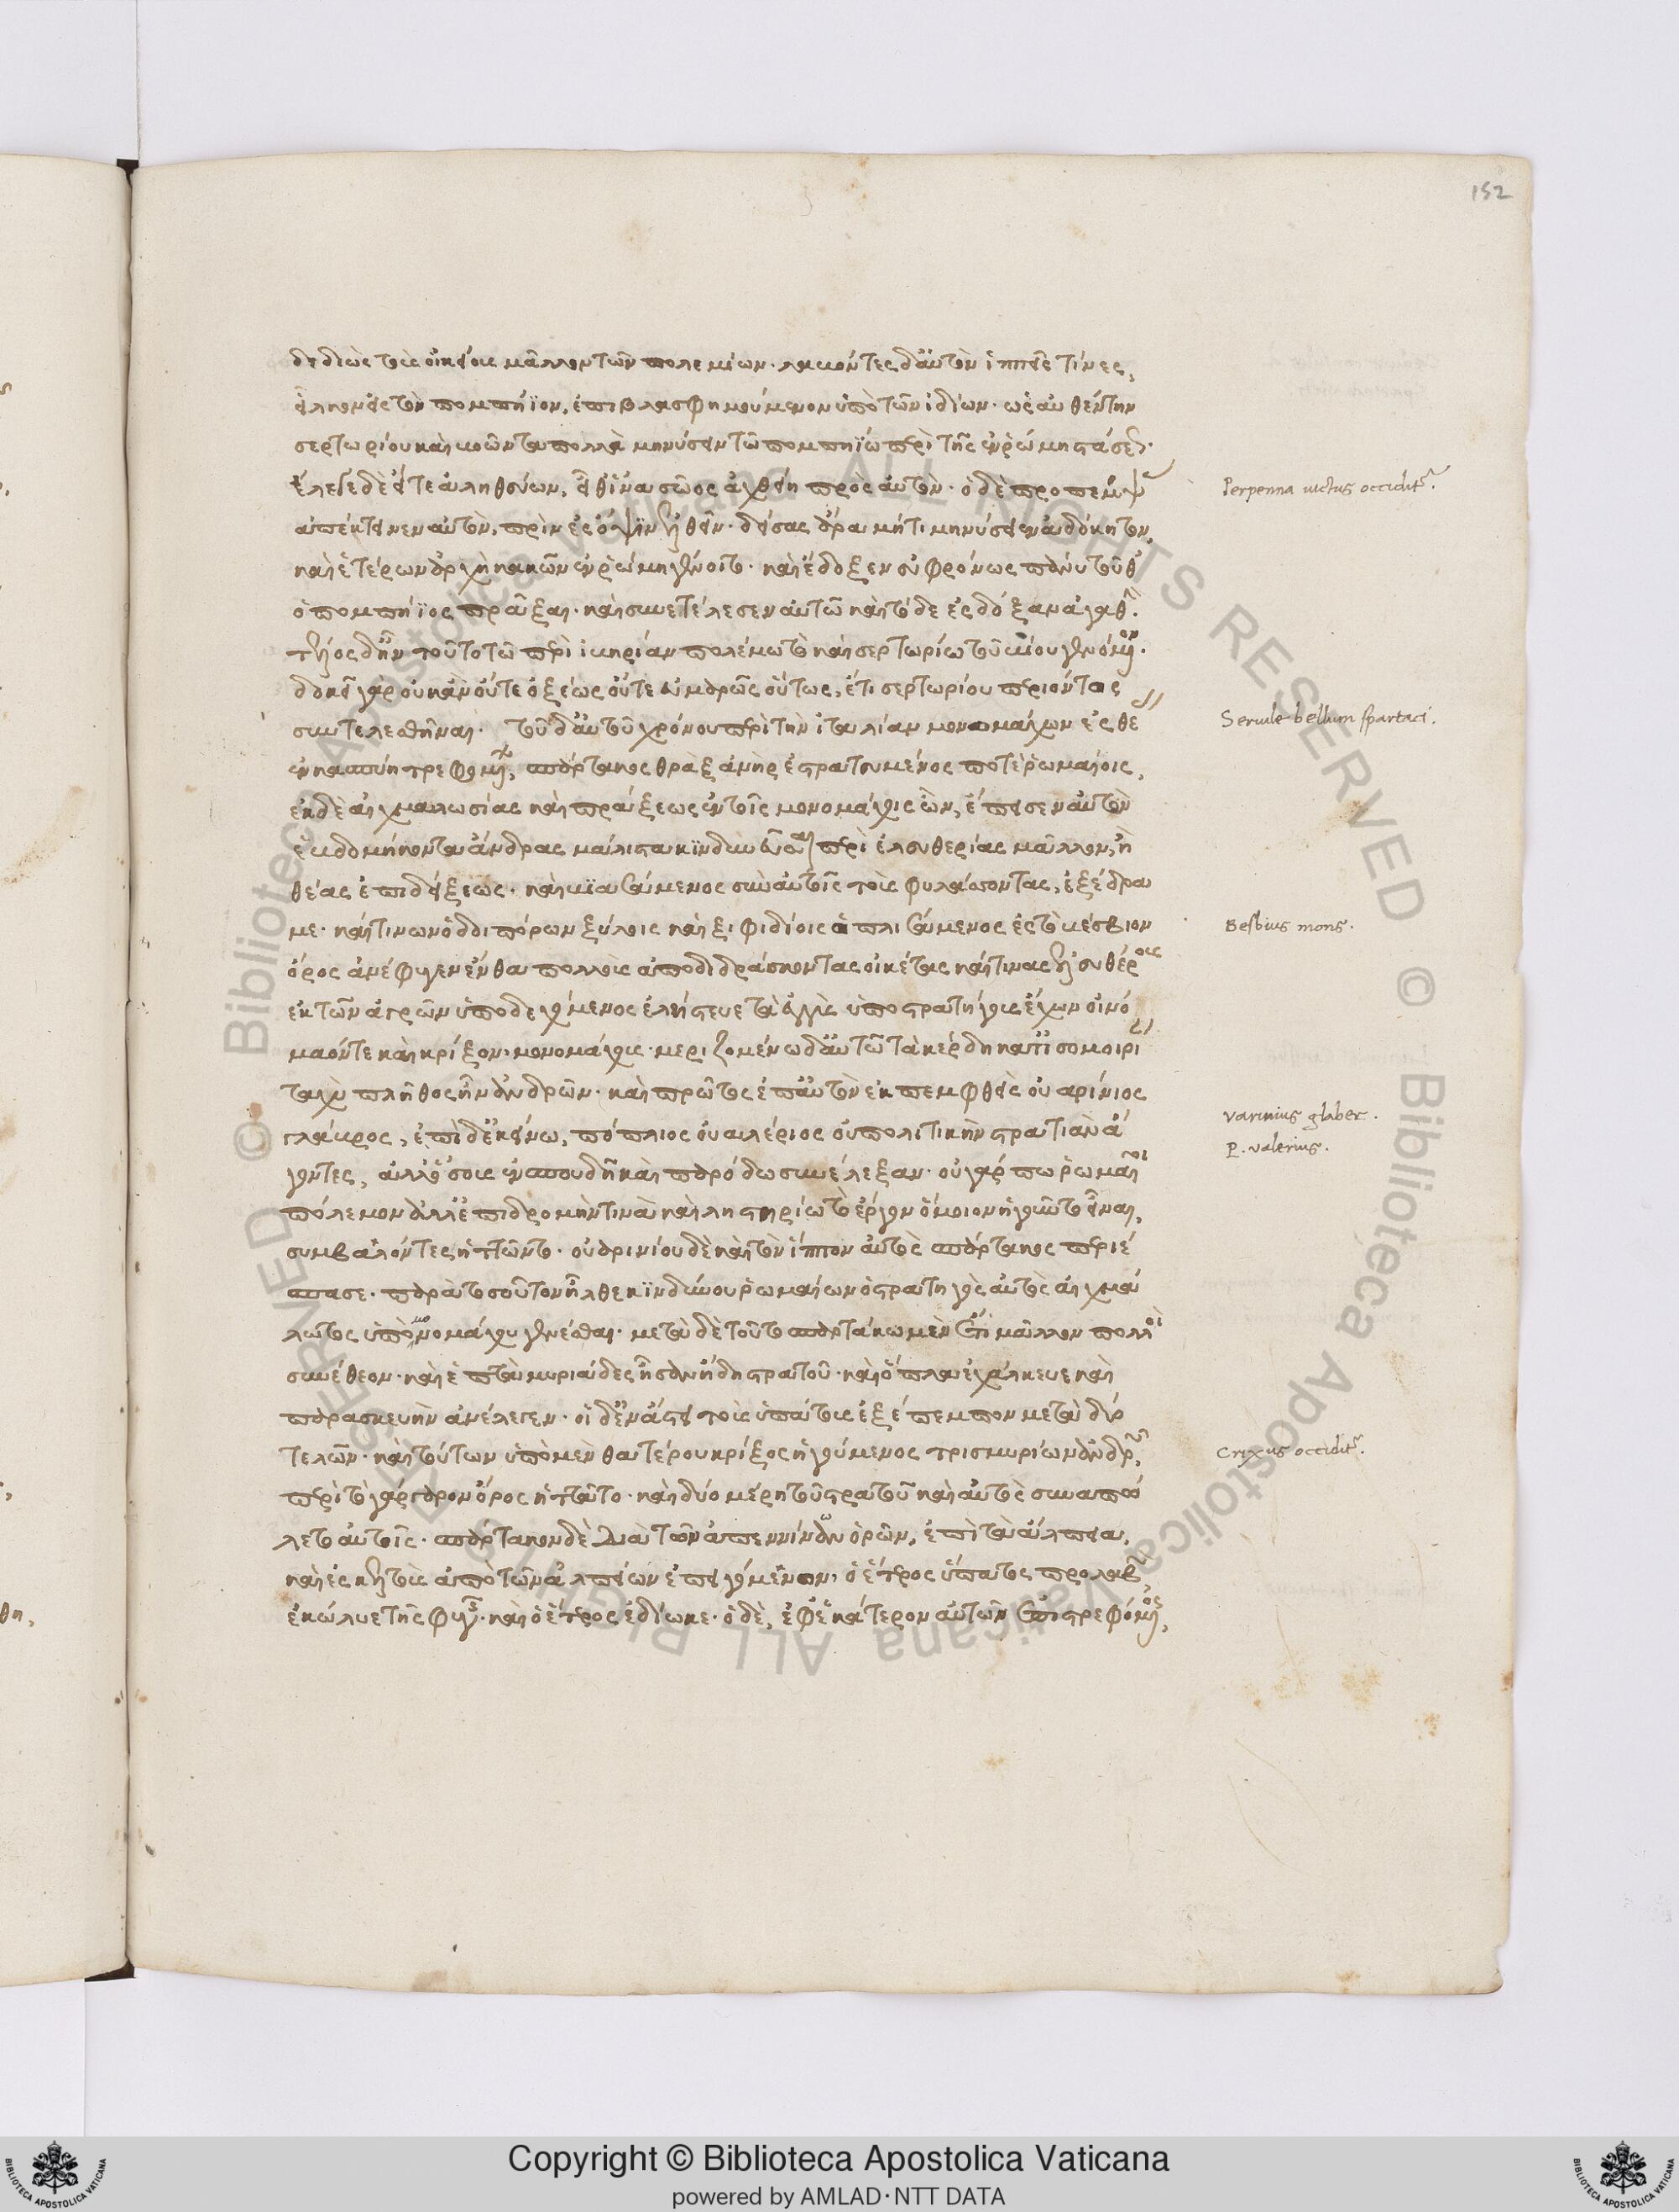 δεδιὼς τοὺς οἰκείους μᾶλλον τῶν πολεμίων· λαβόντες δ᾽ αὐτὸν ἱππεῖς τινες,
εἷλκον ἐς τὸν πομπήϊον, ἐπιβλασφημούμενον ὑπὸ τῶν ἰδίων· ὡς αὐθέντην
σερτωρίου καὶ βοῶντα πολλὰ μηνύσειν τῶ πομπηίω περὶ τῆς ἐν ῥώμη στάσεως·
ἔλεγε δὲ εἴτε ἀληθεύων, εἴθ᾽ ἵνα σῶος ἀχθείη πρὸς αὐτόν· ὁ δὲ προπέμψας
ἀπέκτεινεν αὐτὸν, πρὶν ἐς ὄψιν ἐλθεῖν· δείσας ἄρα μή τι μηνύσειεν ἀδόκητον,
καὶ ἑτέρων ἀρχὴ κακῶν ἐν ῥώμη γένοιτο· καὶ ἔδοξεν εὐφρόνως πάνυ τοῦθ᾽
ὁ πομπήϊος πρᾶξαι· καὶ συνετέλεσεν αὐτῶ καὶ τόδε ἐς δόξαν ἀγαθήν.
τέλος δ᾽ ἦν τοῦτο τῶ περὶ ἰβηρίαν πολέμω τὸ καὶ σερτωρίω τοῦ βίου γενόμενον·
δοκεῖ γὰρ οὐκ ἂν οὔτε ὀξέως οὔτε εὐμαρῶς οὕτως, ἔτι σερτωρίου περιόντος
συντελεσθῆναι· τοῦ δ᾽ αὐτοῦ χρόνου περὶ τὴν ἰταλίαν μονομάχων ἐς θέ
ἐν καπύη τρεφομένων, σπάρτακος θρὰξ ἀνὴρ ἐστρατευμένος ποτὲ ῥωμαίοις,
ἐκ δὲ αἰχμαλωσίας καὶ πράξεως ἐν τοῖς μονομάχοις ὢν, ἔπεισεν αὐτὸν
ἑβδομήκοντα ἄνδρας μάλιστα κινδυνεῦσαι περὶ ἐλευθερίας μᾶλλον, ἢ
θέας ἐπιδείξεως· καὶ βιασάμενος σὺν αὐτοῖς τοὺς φυλάσσοντας, ἐξέδρα
με· καί τινων ὁδοιπόρων ξύλοις καὶ ξιφιδίοις ὁπλισάμενος ἐς τὸ βέσβιον
ὄρος ἀνέφυγεν ἔνθα πολλοὺς ἀποδιδράσκοντας οἰκέτας καί τινας ἐλευθέρους
ἐκ τῶν ἀγρῶν ὑποδεχόμενος ἐλήστευε τὰ ἐγγὺς ὑποστρατήγους ἔχων οἰνό
μαόν τε καὶ κρίξον· μονομάχους· μεριζομένω δ᾽ αὐτῶ τὰ κέρδη κατ᾽ ἰσομοιρί
ταχὺ πλῆθος ἦν ἀνδρῶν· καὶ πρῶτος ἐπ᾽ αὐτὸν ἐκπεμφθεὶς οὐαρίνιος
γλάβρος, ἐπὶ δ᾽ ἐκείνω, πόπλιος οὐαλέριος οὐ πολιτικὴν στρατιὰν ἄ
γοντες, ἀλλ᾽ ὅσους ἐν σπουδῆ καὶ παρόδω συνέλεξαν· οὐ γάρ πω ῥωμαῖοι
πόλεμον ἀλλ᾽ ἐπιδρομήν τινα καὶ ληστηρίω τὸ ἔργον ὅμοιον ἡγοῦντο εἶναι,
συμβαλόντες ἡττῶντο· οὐαρινίου δὲ καὶ τὸν ἵππον αὐτὸς σπάρτακος περιέ
σπασε· παρὰ τοσοῦτον ἦλθε κινδύνου ῥωμαίων ὁ στρατηγὸς αὐτὸς αἰχμά
λωτος ὑπὸ μονομάχου γενέσθαι· μετὰ δὲ τοῦτο σπαρτάκω μὲν ἔτι μᾶλλον πολλοὶ
συνέθεον· καὶ ἑπτὰ μυριάδες ἦσαν ἤδη στρατοῦ· καὶ ὅπλα ἐχάλκευε καὶ
παρασκευὴν ἀνέλεγεν· οἱ δ᾽ ἐν ἄστει τοὺς ὑπάτους ἐξέπεμπον μετὰ δύο
τελῶν· καὶ τούτων ὑπὸ μὲν θατέρου κρίξος ἡγούμενος τρισμυρίων ἀνδρῶν,
περὶ τὸ γάργαρον ὄρος ἡττᾶτο· καὶ δύο μέρη τοῦ στρατοῦ καὶ αὐτὸς συναπώ
λετο αὐτοῖς· σπάρτακον δὲ διὰ τῶν ἀπεννίνων ὀρῶν, ἐπὶ τὰ ἄλπεια,
καὶ ἐς κελτοὺς ἀπὸ τῶν ἀλπείων ἐπειγόμενον, ὁ ἕτερος ὕπατος προλαβὼν
ἐκώλυε τῆς φυγῆς· καὶ ὁ ἕτερος ἐδίωκε· ὁ δὲ, ἐφ᾽ ἑκάτερον αὐτῶν ἐπιστρεφόμενος,
152
Perpenna victus occiditur.
Seruile bellum spartaci.
Besbius mons.
Varinius glaber.
P. Valerius.
Crixus occiditur.
Copyright © Biblioteca Apostolica Vaticana
powered by AMLAD·NTT DATA